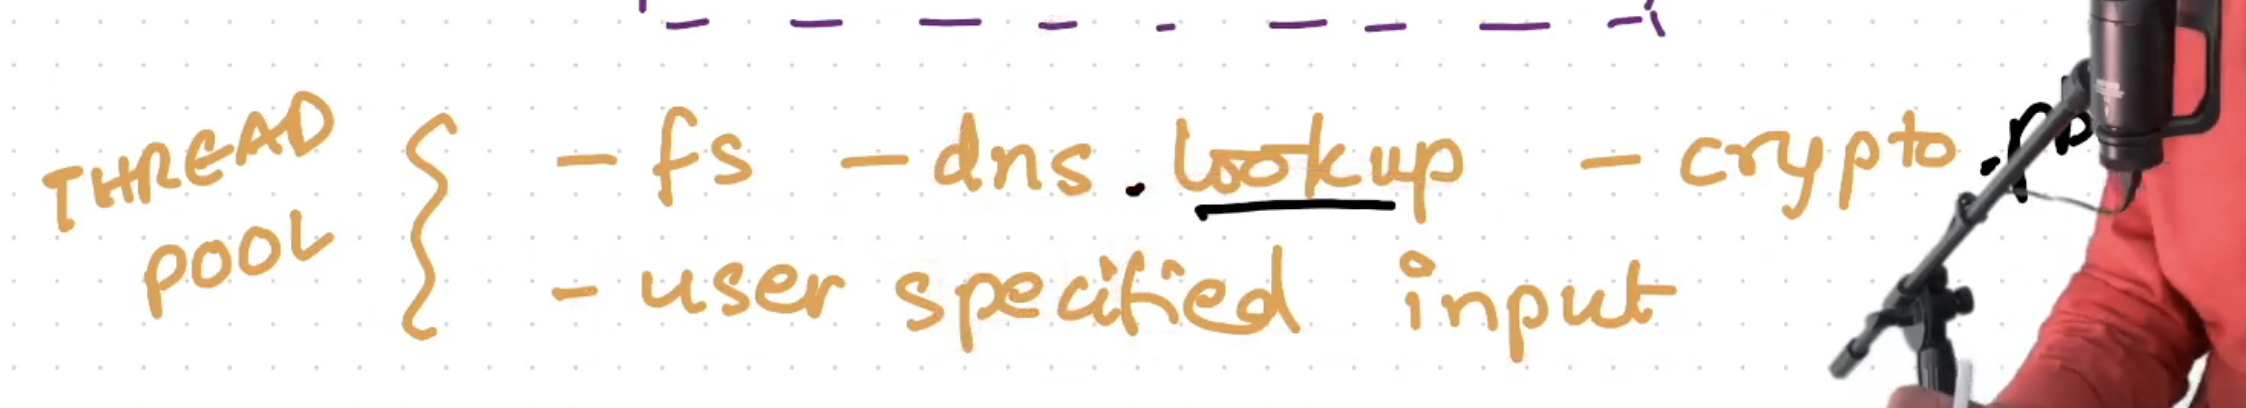 THREAD
POOL
- fs - dns.lookup - crypto
- user specified input